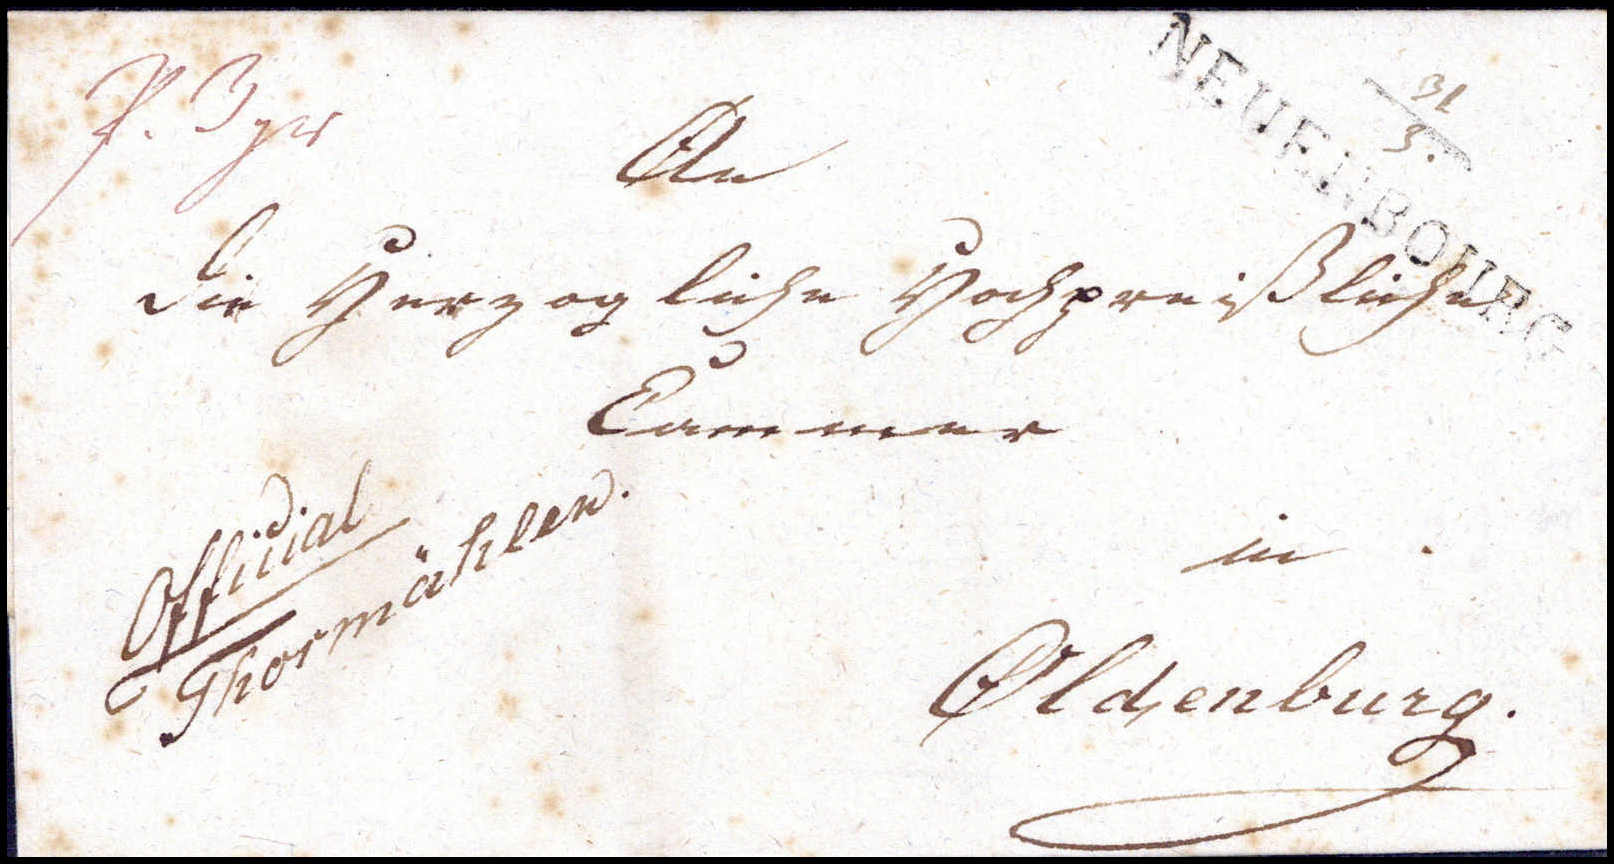 NEUENBOURG
31
3.
An
die Herzogliche Hochpreißliche
Cammer
in
Oldenburg.
Official
Thormählen.